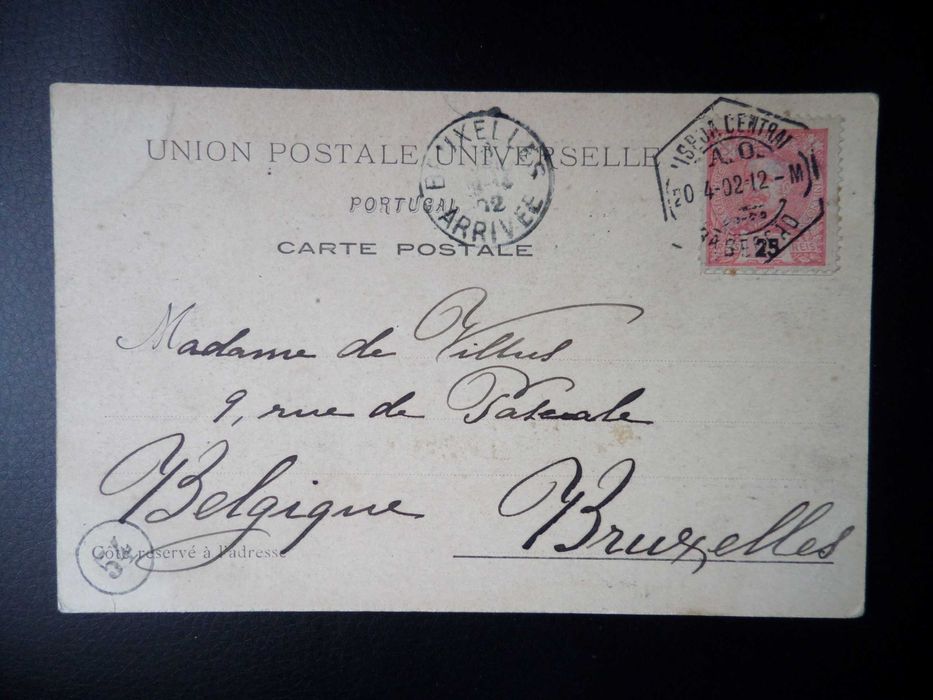 UNION POSTALE UNIVERSELLE
PORTUGAL
CARTE POSTALE
BRUXELLES
02
ARRIVÉE
LISBOA CENTRAL
A. O.
20 4-02-12-M
25
REIS
Madame de
9, rue de
Belgique Bruxelles
Côté réservé à l'adresse